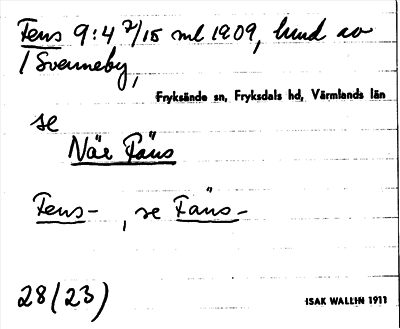 Fens 9:4 7/15 ml 1909, lund av
/ Svenneby,
Fryksände sn, Fryksdals hd, Värmlands län
se
När Fäns
Fens- , se Fäns-
28(23)
ISAK WALLIN 1911